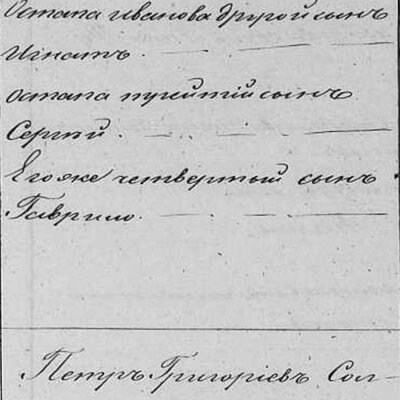 Остапа Иванова другой сынъ
Игнатъ
Остапа третiй сынъ
Сергѣй
Его же четвертый сынъ
Гаврило
Петръ Григорiевъ Сол-